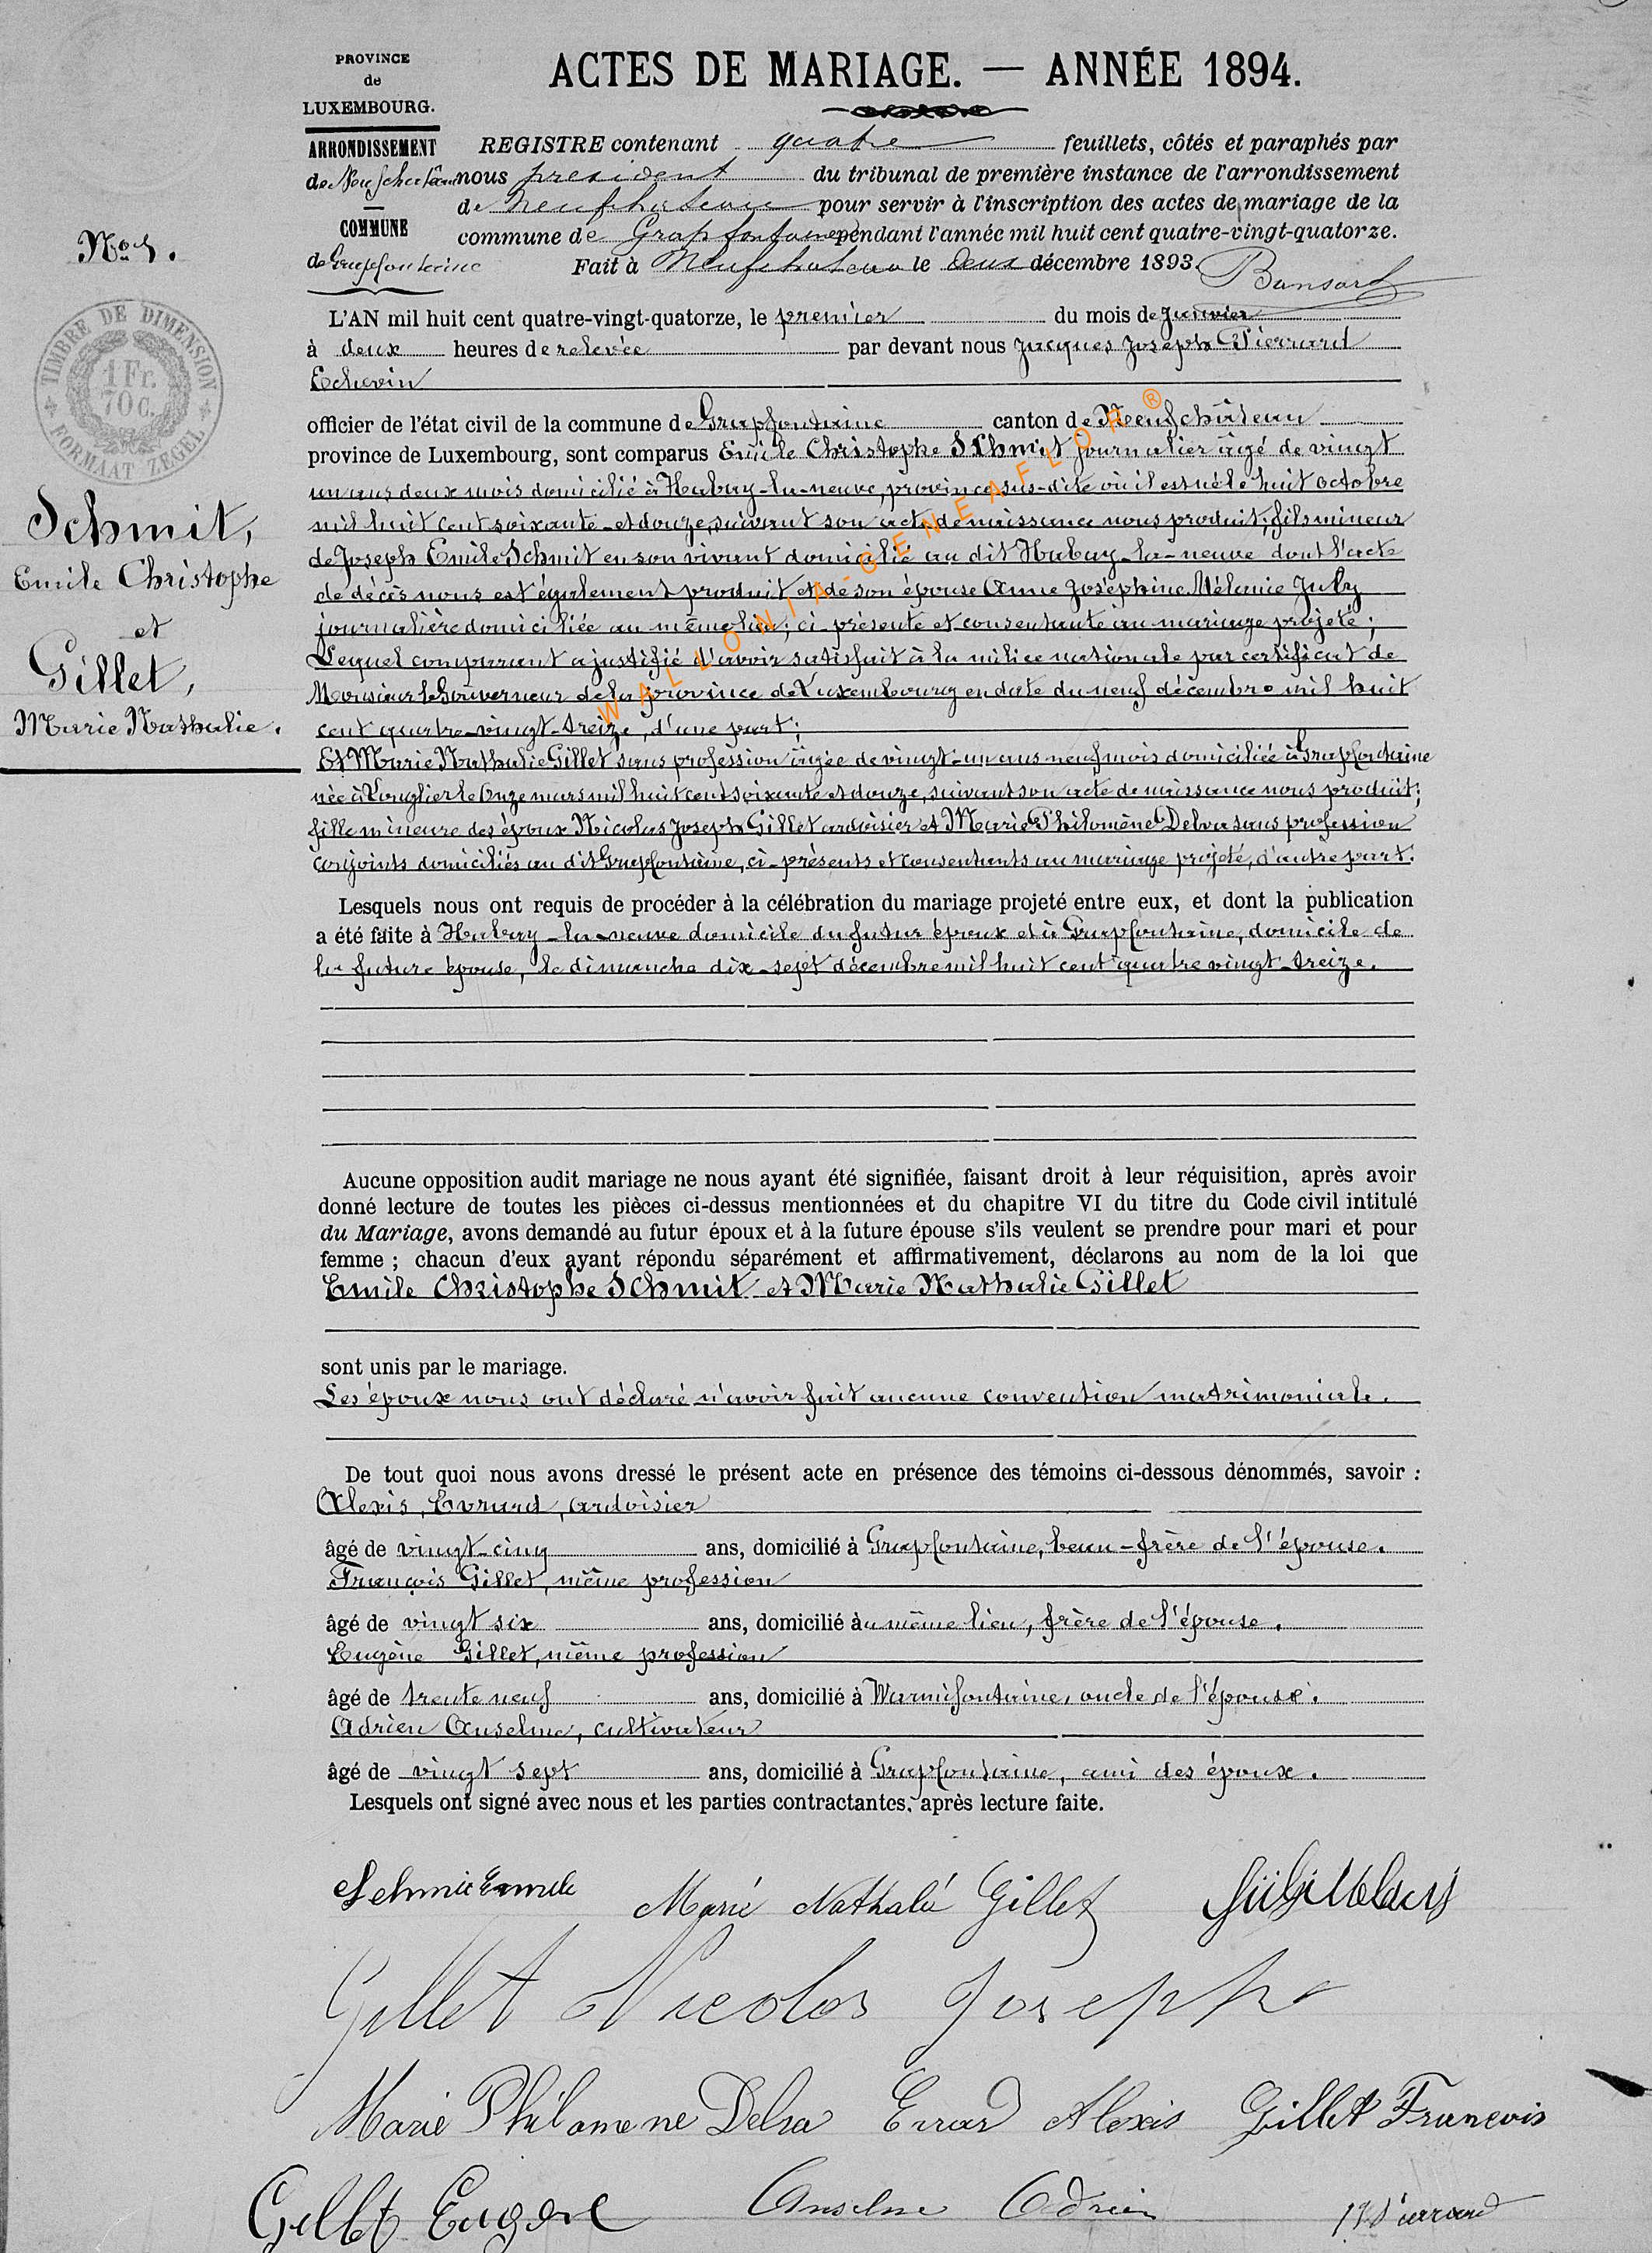 PROVINCE
de
LUXEMBOURG.
ARRONDISSEMENT
de Neufchateau
COMMUNE
de Grapfontaine
ACTES DE MARIAGE. — ANNÉE 1894.
REGISTRE contenant quatre feuillets, côtés et paraphés par
nous president du tribunal de première instance de l'arrondissement
de Neufchateau pour servir à l'inscription des actes de mariage de la
commune de Grapfontaine pendant l'année mil huit cent quatre-vingt-quatorze.
Fait à Neufchateau le deux décembre 1893.
TIMBRE DE DIMENSION
1 Fr.
70 c.
FORMAAT ZEGEL
No 1.
Schmit,
Emile Christophe
et
Gillet,
Marie Nathalie.
L'AN mil huit cent quatre-vingt-quatorze, le premier du mois de Janvier
à deux heures de relevée par devant nous Jacques Joseph Pierrard
Echevin
officier de l'état civil de la commune de Grapfontaine canton de Neufchâteau
province de Luxembourg, sont comparus Emile Christophe Schmit journalier âgé de vingt
un ans deux mois domicilié à Habay-la-neuve, province sus-dite où il est né le huit octobre
mil huit cent soixante-et douze, suivant son acte de naissance nous produit; fils mineur
de Joseph Emile Schmit en son vivant domicilié au dit Habay-la-neuve dont l'acte
de décès nous est également produit et de son épouse Anne Joséphine Mélanie July
journalière domiciliée au même lieu; ci-présente et consentante au mariage projeté;
Lequel comparant a justifié d'avoir satisfait à la milice nationale par certificat de
Monsieur le Gouverneur de la province de Luxembourg en date du neuf décembre mil huit
cent quatre-vingt-treize, d'une part;
Et Marie Nathalie Gillet sans profession âgée de vingt-un ans neuf mois domiciliée à Grapfontaine
née à Longlier le Onze mars mil huit cent soixante et douze, suivant son acte de naissance nous produit;
fille mineure des époux Nicolas Joseph Gillet ardoisier et Marie Philomène Delva sans profession
conjoints domiciliés au dit Grapfontaine, ci-présents et consentants au mariage projeté, d'autre part.
Lesquels nous ont requis de procéder à la célébration du mariage projeté entre eux, et dont la publication
a été faite à Habay-la-neuve domicile du futur époux et à Grapfontaine, domicile de
la future épouse, le dimanche dix-sept décembre mil huit cent quatre vingt-treize.
Aucune opposition audit mariage ne nous ayant été signifiée, faisant droit à leur réquisition, après avoir
donné lecture de toutes les pièces ci-dessus mentionnées et du chapitre VI du titre du Code civil intitulé
du Mariage, avons demandé au futur époux et à la future épouse s'ils veulent se prendre pour mari et pour
femme ; chacun d'eux ayant répondu séparément et affirmativement, déclarons au nom de la loi que
Emile Christophe Schmit et Marie Nathalie Gillet
sont unis par le mariage.
Les époux nous ont déclaré n'avoir fait aucune convention matrimoniale.
De tout quoi nous avons dressé le présent acte en présence des témoins ci-dessous dénommés, savoir :
Alexis, Evrard, ardoisier
âgé de vingt-cinq ans, domicilié à Grapfontaine, beau-frère de l'épouse.
François Gillet, même profession
âgé de vingt six ans, domicilié au même lieu, frère de l'épouse.
Eugène Gillet, même profession
âgé de trente neuf ans, domicilié à Warmifontaine, oncle de l'épouse.
Adrien Anselme, cultivateur
âgé de vingt sept ans, domicilié à Grapfontaine, ami des époux.
Lesquels ont signé avec nous et les parties contractantes, après lecture faite.
Schmit Emile Marie Nathalie Gillet
Gillet Nicolas Joseph
Marie Philomene Delva Evrard Alexis Gillet Francois
Gillet Eugene Anselme Adrien Pierrard
WALLONIA-GENEAFLOR ®